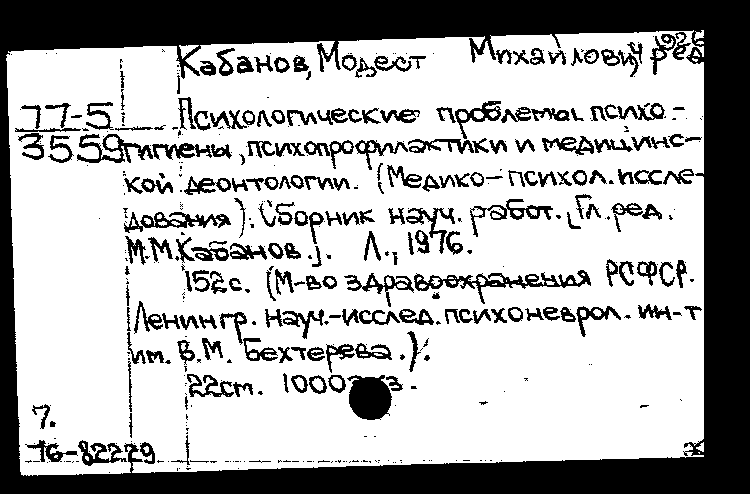 1926
Кабанов, Модест Михайлович, ред
77-5 Психологические проблемы психо-
3559 гигиены, психопрофилактики и медицинс-
кой деонтологии. (Медико-психол. иссле-
дования). Сборник науч. работ. [Гл. ред.
М.М. Кабанов.]. Л., 1976.
152 с. (М-во здравоохранения РСФСР.
Ленингр. науч.-исслед. психоневрол. ин-т
им. В.М. Бехтерева.).
22 cm. 1000
7.
76-82229